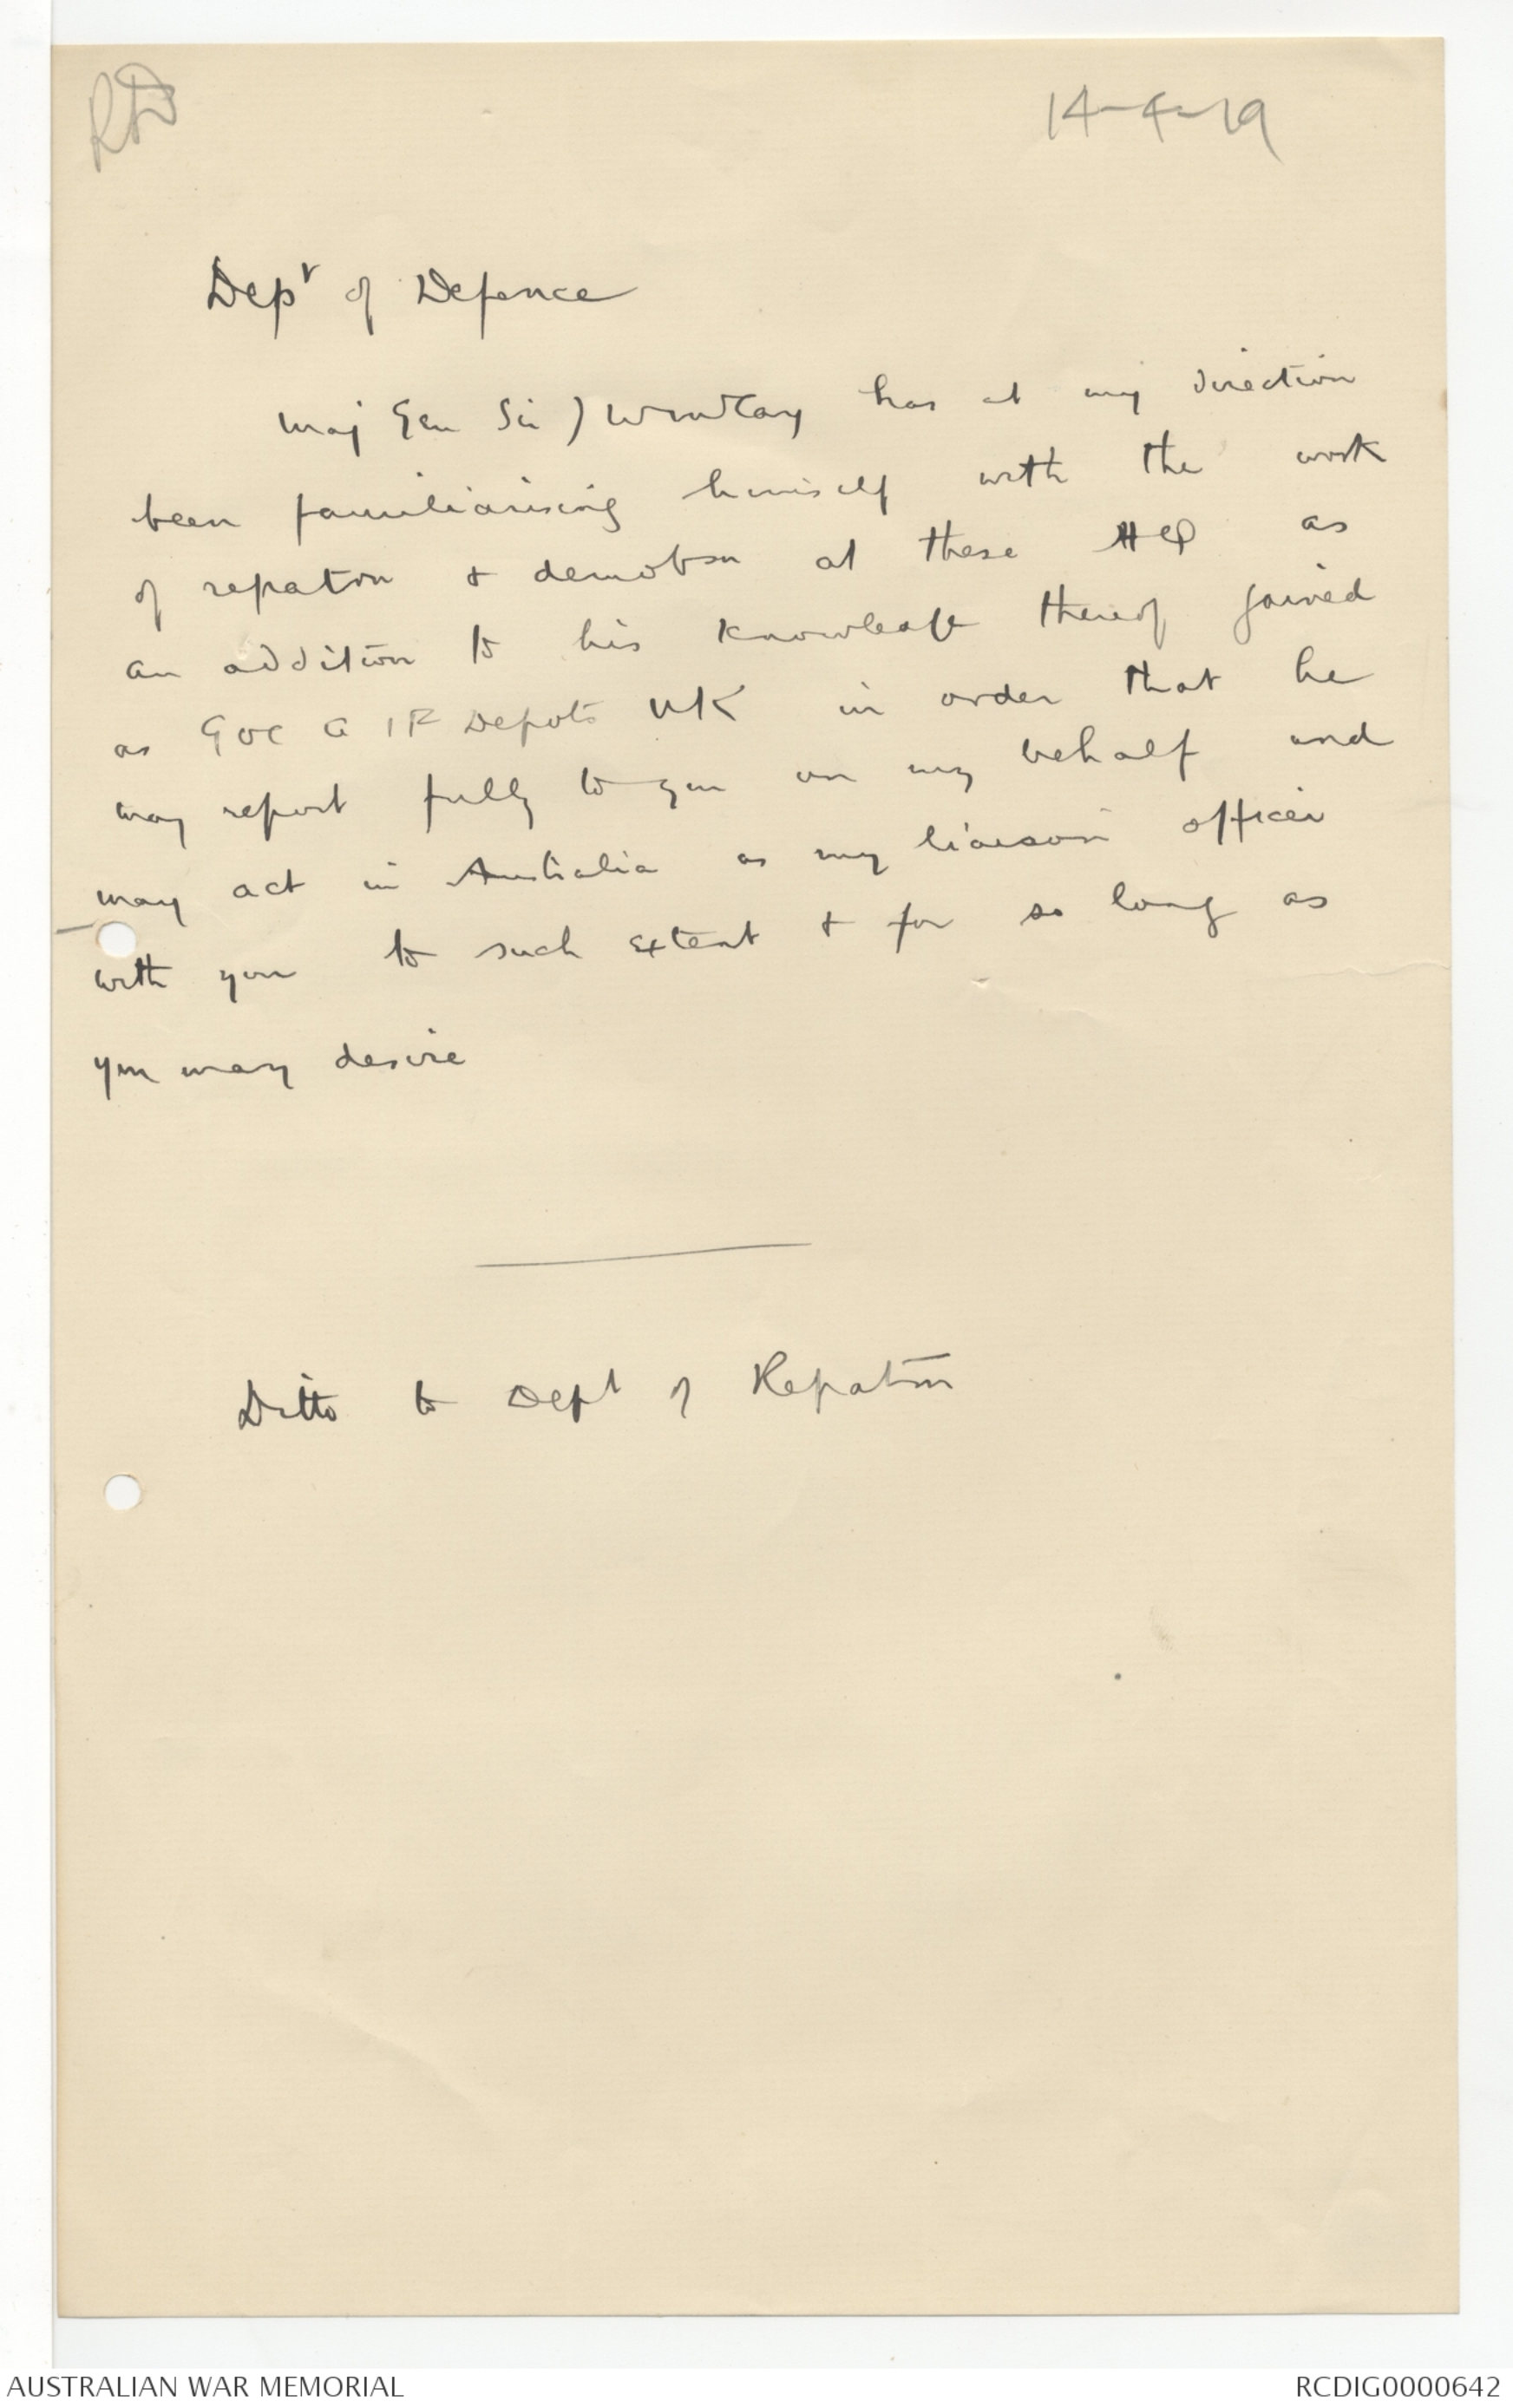 R&D
14-4-19
Dept of Defence
Maj Gen Sir J W McCay has at my direction
been familiarising himself with the work
of repaton & demobn at these HQ as
an addition to his knowledge thereof gained
as GOC AIF Depots UK in order that he
may report fully to you on my behalf and
may act in Australia as my liaison officer
with you to such extent & for so long as
you may desire
Ditto to Dept of Repatn
AUSTRALIAN WAR MEMORIAL
RCDIG0000642